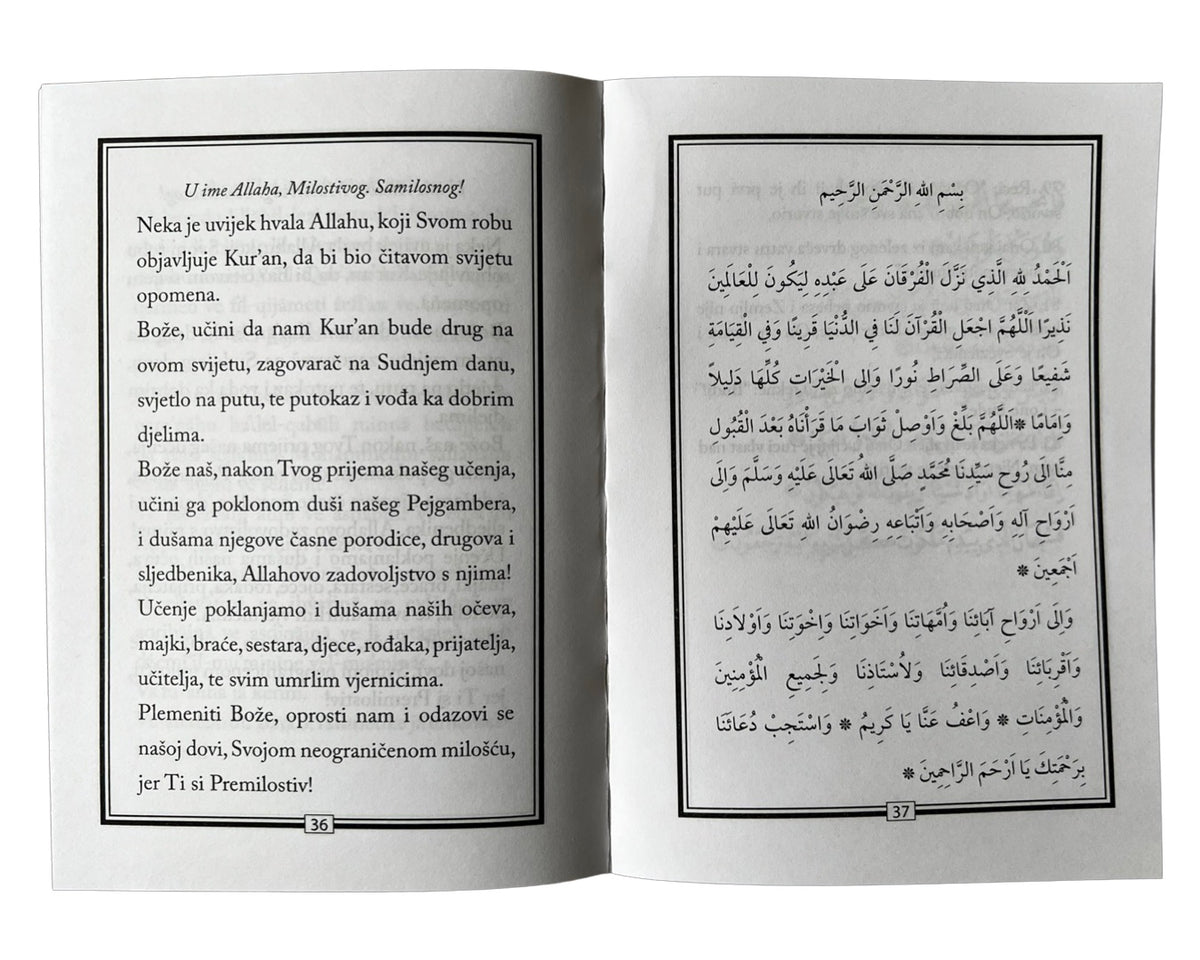 U ime Allaha, Milostivog. Samilosnog!
Neka je uvijek hvala Allahu, koji Svom robu
objavljuje Kur’an, da bi bio čitavom svijetu
opomena.
Bože, učini da nam Kur’an bude drug na
ovom svijetu, zagovarač na Sudnjem danu,
svjetlo na putu, te putokaz i vođa ka dobrim
djelima.
Bože naš, nakon Tvog prijema našeg učenja,
učini ga poklonom duši našeg Pejgambera,
i dušama njegove časne porodice, drugova i
sljedbenika, Allahovo zadovoljstvo s njima!
Učenje poklanjamo i dušama naših očeva,
majki, braće, sestara, djece, rođaka, prijatelja,
učitelja, te svim umrlim vjernicima.
Plemeniti Bože, oprosti nam i odazovi se
našoj dovi, Svojom neograničenom milošću,
jer Ti si Premilostiv!
36
بِسْمِ اللهِ الرَّحْمَنِ الرَّحِيمِ
اَلْحَمْدُ لِلهِ الَّذِي نَزَّلَ الْفُرْقَانَ عَلَى عَبْدِهِ لِيَكُونَ لِلْعَالَمِينَ
نَذِيرًا اَللَّهُمَّ اجْعَلِ الْقُرْآنَ لَنَا فِي الدُّنْيَا قَرِينًا وَفِي الْقِيَامَةِ
شَفِيعًا وَعَلَى الصِّرَاطِ نُورًا وَاِلَى الْخَيْرَاتِ كُلِّهَا دَلِيلاً
وَاِمَامًا ❋اَللَّهُمَّ بَلِّغْ وَاَوْصِلْ ثَوَابَ مَا قَرَأْنَاهُ بَعْدَ الْقَبُولِ
مِنَّا اِلَى رُوحِ سَيِّدِنَا مُحَمَّدٍ صَلَّى اللهُ تَعَالَى عَلَيْهِ وَسَلَّمَ وَاِلَى
اَرْوَاحِ آلِهِ وَاَصْحَابِهِ وَاَتْبَاعِهِ رِضْوَانُ اللهِ تَعَالَى عَلَيْهِمْ
اَجْمَعِينَ ❋
وَاِلَى اَرْوَاحِ آبَائِنَا وَاُمَّهَاتِنَا وَاَخَوَاتِنَا وَاِخْوَتِنَا وَاَوْلَادِنَا
وَاَقْرِبَائِنَا وَاَصْدِقَائِنَا وَلاُسْتَاذِنَا وَلِجَمِيعِ الْمُؤْمِنِينَ
وَالْمُؤْمِنَاتِ ❋ وَاعْفُ عَنَّا يَا كَرِيمُ ❋ وَاسْتَجِبْ دُعَائَنَا
بِرَحْمَتِكَ يَا اَرْحَمَ الرَّاحِمِينَ ❋
37